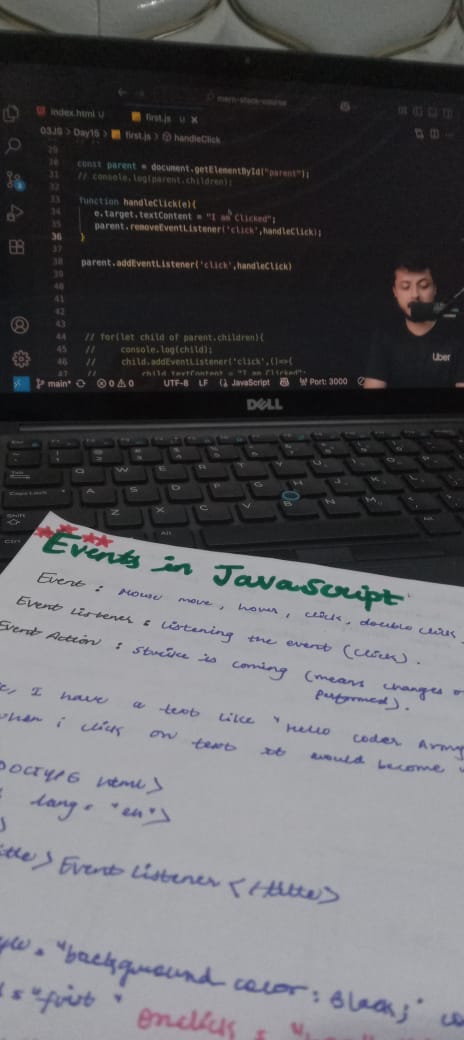 mern-stack-course
index.html U first.js U X
03JS > Day15 > first.js > handleClick
29
30 const parent = document.getElementById("parent");
31 // console.log(parent.children);
32
33 function handleClick(e){
34 e.target.textContent = "I am Clicked";
35 parent.removeEventListener('click',handleClick);
36 }
37
38 parent.addEventListener('click',handleClick)
39
40
41
42
43
44 // for(let child of parent.children){
45 // console.log(child);
46 // child.addEventListener('click',()=>{
47 // child.textContent = "I am Clicked";
Uber
main* 0 0 UTF-8 LF {} JavaScript Port: 3000
DELL
Q W E R T Y U
Caps Lock A S D F G H J K L
Shift Z X C V B N M
Ctrl Alt
Events in JavaScript
Event : Mouse move, hover, click, double click
Event Listener : Listening the event (click).
Event Action : Strike is coming (means changes
performed).
I have a text like "Hello coder Army
when i click on text it would become
DOCTYPE html>
lang = "en">
Event Listener </title>
"background color: Black;"
= "first" onclick =